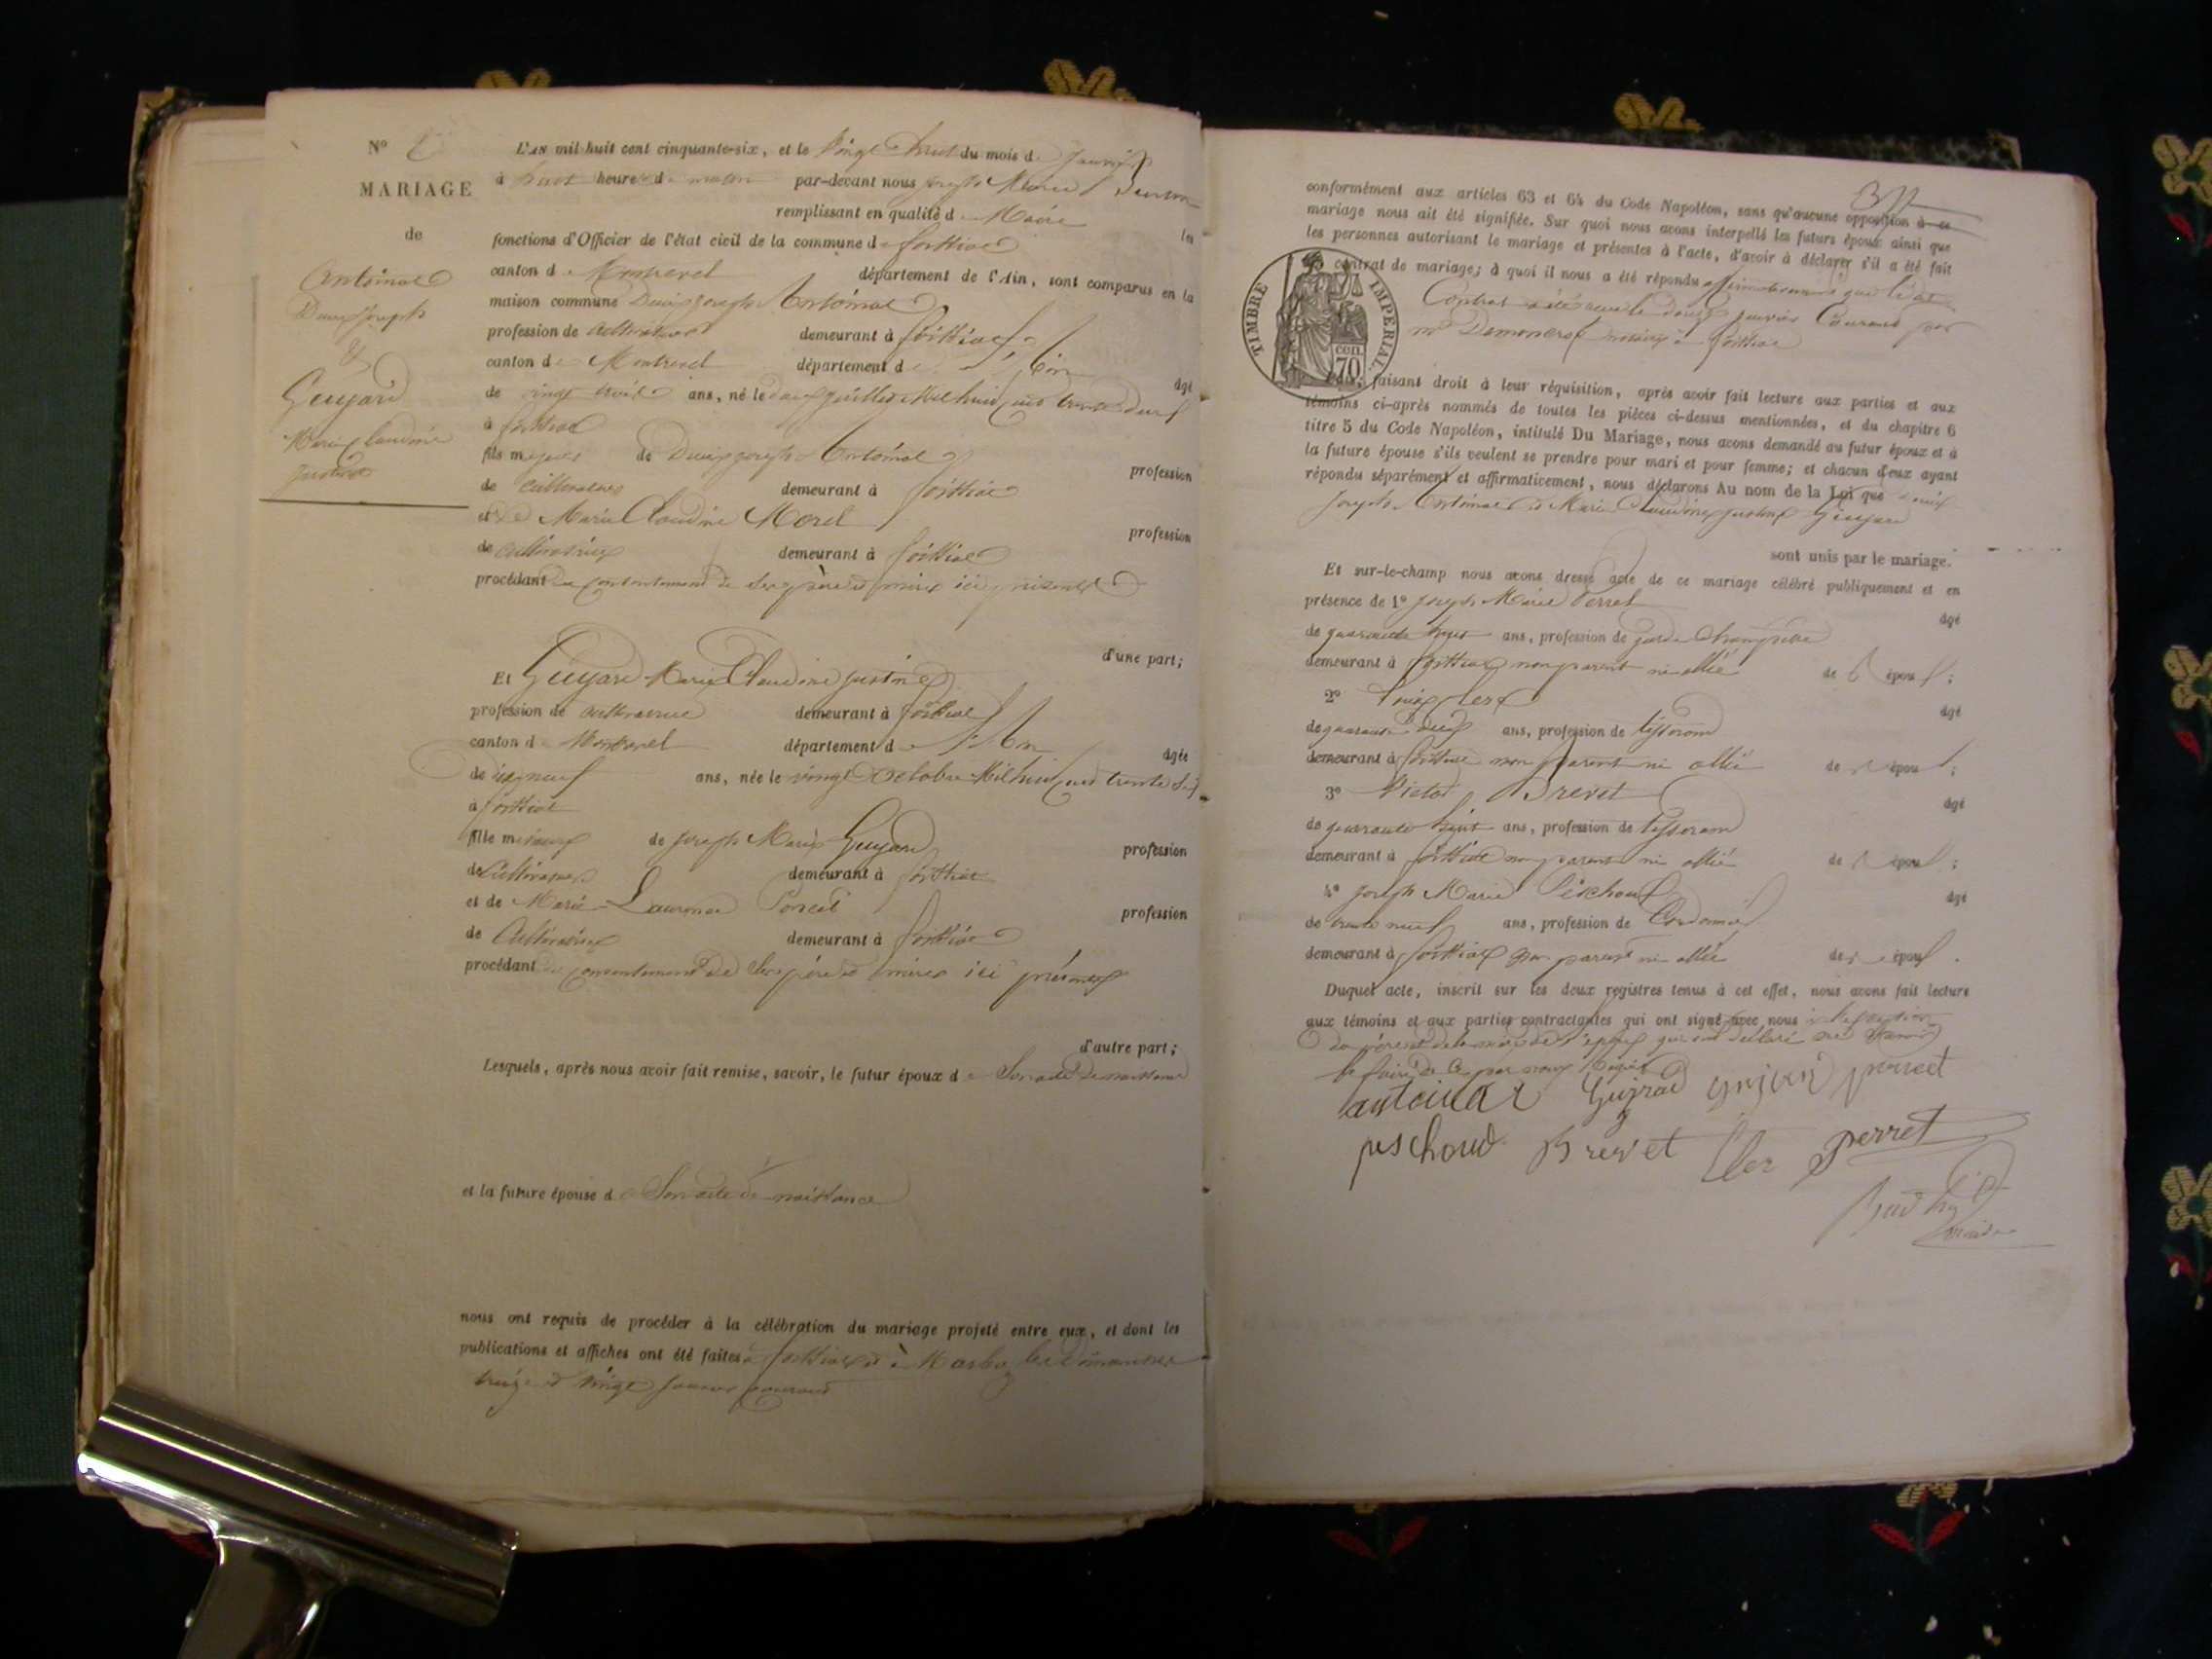 N°
MARIAGE
de
Antoinat
Denis Joseph
&
Guyard
Marie Claudine
Justine
L'AN mil huit cent cinquante-six, et le vingt huit du mois de Janvier
à huit heures du matin par-devant nous Joseph Marie
remplissant en qualité de Maire les
fonctions d'Officier de l'état civil de la commune de foissiat
canton de Montrevel département de l'Ain, sont comparus en la
maison commune Denis Joseph Antoinat
profession de cultivateur demeurant à foissiat
canton de Montrevel département de l'Ain âgé
de vingt trois ans, né le juillet mil huit cent trente deux
à foissiat
fils majeur de Denis Joseph Antoinat profession
de cultivateur demeurant à foissiat
et de Marie Claudine Morel profession
de cultivatrice demeurant à foissiat
procédant du consentement de ses père et mère ici présents
d'une part;
Et Guyard Marie Claudine Justine
profession de cultivatrice demeurant à foissiat
canton de Montrevel département de l'Ain âgée
de dix neuf ans, née le vingt octobre mil huit cent trente six
à foissiat
fille mineure de Joseph Marie Guyard profession
de cultivateur demeurant à foissiat
et de Marie Laurence Poncet profession
de cultivatrice demeurant à foissiat
procédant du consentement de ses père et mère ici présents
d'autre part;
Lesquels, après nous avoir fait remise, savoir, le futur époux de Son acte de naissance
et la future épouse de Son acte de naissance
nous ont requis de procéder à la célébration du mariage projeté entre eux, et dont les
publications et affiches ont été faites à foissiat et à Marboz les dimanches
treize et vingt janvier courant
conformément aux articles 63 et 64 du Code Napoléon, sans qu'aucune opposition à ce
mariage nous ait été signifiée. Sur quoi nous avons interpellé les futurs époux ainsi que
les personnes autorisant le mariage et présentes à l'acte, d'avoir à déclarer s'il a été fait
contrat de mariage; à quoi il nous a été répondu affirmativement que le dit
Contrat a été reçu le douze janvier Courant par
me notaire à foissiat
TIMBRE IMPERIAL
70 cen.
faisant droit à leur réquisition, après avoir fait lecture aux parties et aux
témoins ci-après nommés de toutes les pièces ci-dessus mentionnées, et du chapitre 6
titre 5 du Code Napoléon, intitulé Du Mariage, nous avons demandé au futur époux et à
la future épouse s'ils veulent se prendre pour mari et pour femme; et chacun d'eux ayant
répondu séparément et affirmativement, nous déclarons Au nom de la Loi que Denis
Joseph Antoinat & Marie Claudine Justine Guyard
sont unis par le mariage.
Et sur-le-champ nous avons dressé acte de ce mariage célébré publiquement et en
présence de 1° Joseph Marie Perret âgé
de quarante huit ans, profession de garde champêtre
demeurant à foissiat non parent ni allié des époux;
2° Cler âgé
de quarante deux ans, profession de tisserand
demeurant à foissiat non parent ni allié des époux;
3° Victor Brevet âgé
de quarante huit ans, profession de tisserand
demeurant à foissiat non parent ni allié des époux;
4° Joseph Marie Péchoud âgé
de trente neuf ans, profession de Cordonnier
demeurant à foissiat non parent ni allié des époux.
Duquel acte, inscrit sur les deux registres tenus à cet effet, nous avons fait lecture
aux témoins et aux parties contractantes qui ont signé avec nous à l'exception
du père et de la mère de l'époux qui ont déclaré ne savoir
le faire de ce par nous requis
antoinat Guyrad poncet
peschoud Brevet Cler perret
maire